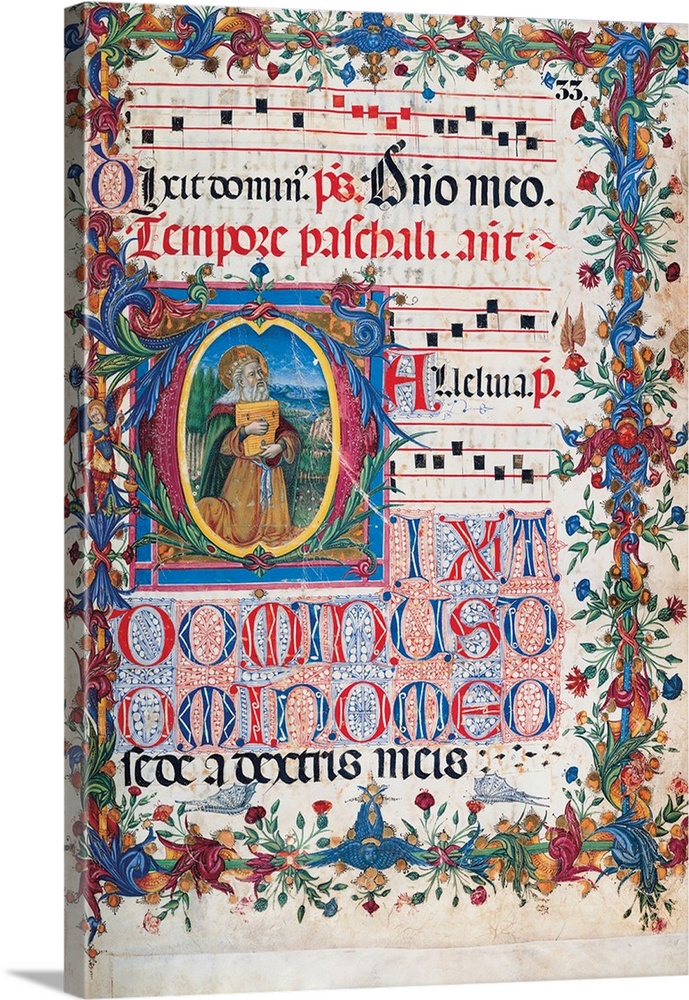 33.
Dixit domin̄. p̄s. Dn̄o meo.
Tempore paschali. ant:
Alleluia. p̄.
DIXIT
DOMINUS D
OMINO MEO
sede a dextris meis